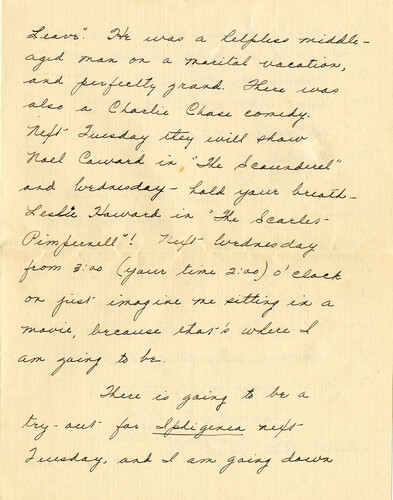 Leave". He was a helpless middle-
aged man on a marital vacation,
and perfectly grand. There was
also a Charlie Chase comedy.
Next Tuesday they will show
Noel Coward in "The Scoundrel"
and Wednesday - hold your breath -
Leslie Howard in "The Scarlet
Pimpernell"! Next Wednesday
from 3:00 (your time 2:00) o'clock
on just imagine me sitting in a
movie, because that's where I
am going to be.
There is going to be a
try-out for Iphigenia next
Tuesday, and I am going down